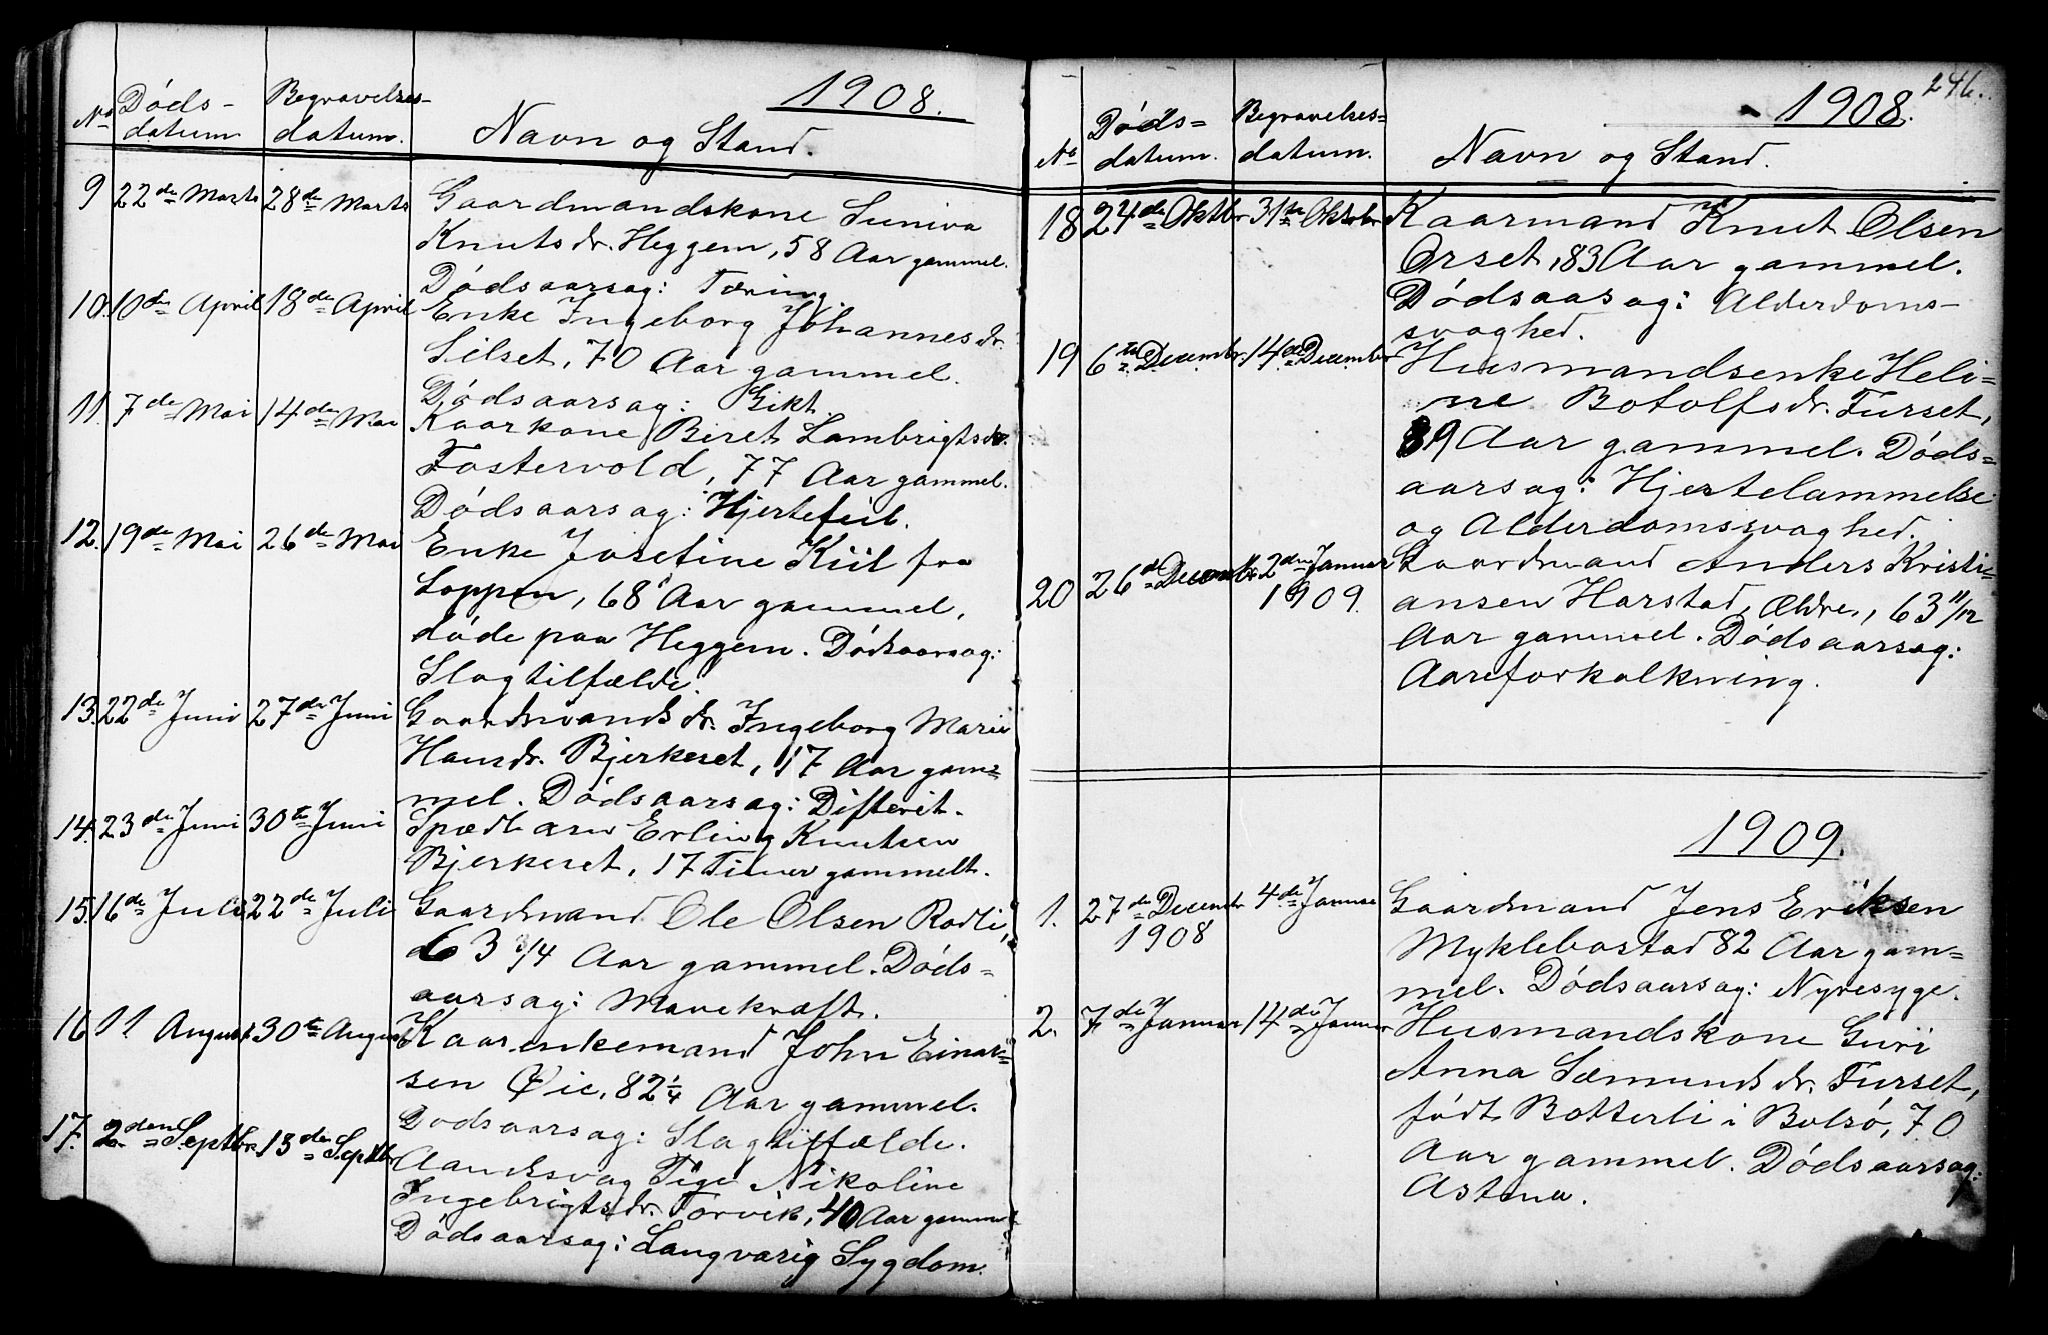 1908.
No Døds- Begravelses-
datum datum. Navn og Stand.
9 22de Marts 28de Marts Gaardmandskone Suniva
Knutsdr. Heggem, 58 Aar gammel.
Dødsaarsag: Tæring.
10. 10de April 18de April Enke Ingeborg Johannesdr.
Silset, 70 Aar gammel.
Dødsaarsag: Gikt.
11. 7de Mai 14de Mai Kaarkone Beret Lambrigtsdr.
Fostervold, 77 Aar gammel.
Dødsaarsag: Hjertefeil.
12. 19de Mai 26de Mai Enke Josefine Kiil fra
Loppen, 68 Aar gammel,
døde paa Heggem. Dødsaarsag:
Slagtilfælde.
13. 22de Juni 27de Juni Gaardmandsdr. Ingeborg Marie
Hansdr. Bjerkeset, 17 Aar gam=
mel. Dødsaarsag: Difterit.
14. 23de Juni 30te Juni Spædbarn Erling Knutsen
Bjerkeset, 17 Timer gammelt.
15. 16de Juli 22de Juli Gaardmand Ole Olsen Rødli,
63 3/4 Aar gammel. Døds=
aarsag: Mavekræft.
16 11 August 30te August Kaarenkemand John Einar=
sen Øie, 82 1/4 Aar gammel.
Dødsaarsag: Slagtilfælde.
17. 2den Septbr. 13de Septbr. Aandssvag Pige Nikoline
Ingebrigtsdr. Torvik, 40 Aar gammel
Dødsaarsag: Langvarig Sygdom.
246.
1908.
No Døds= Begravelses=
datum. datum. Navn og Stand.
18 24de Oktbr 31te Oktobr Kaarmand Knut Olsen
Orset, 83 Aar gammel.
Dødsaarsag: Alderdoms-
svaghed.
19 6te Decembr. 14de Decembr Husmandsenke Heli=
ne Botolfsdr. Furset,
89 Aar gammel. Døds=
aarsag: Hjertelammelse
og Alderdomssvaghed.
20 26de Decembr. 2den Januar Gaardmand Anders Kristi=
1909. ansen Harstad, Ældre, 63 11/12
Aar gammel. Dødsaarsag:
Aareforkalkning.
1909.
1. 27de Decembr 4de Januar Gaardmand Jens Eriksen
1908 Myklebostad 82 Aar gam=
mel. Dødsaarsag: Nyresyge.
2. 7de Januar 14de Januar Husmandskone Guri
Anna Sæmundsdr. Furset,
født Botterli i Bolsø, 70
Aar gammel. Dødsaarsag:
Astma.